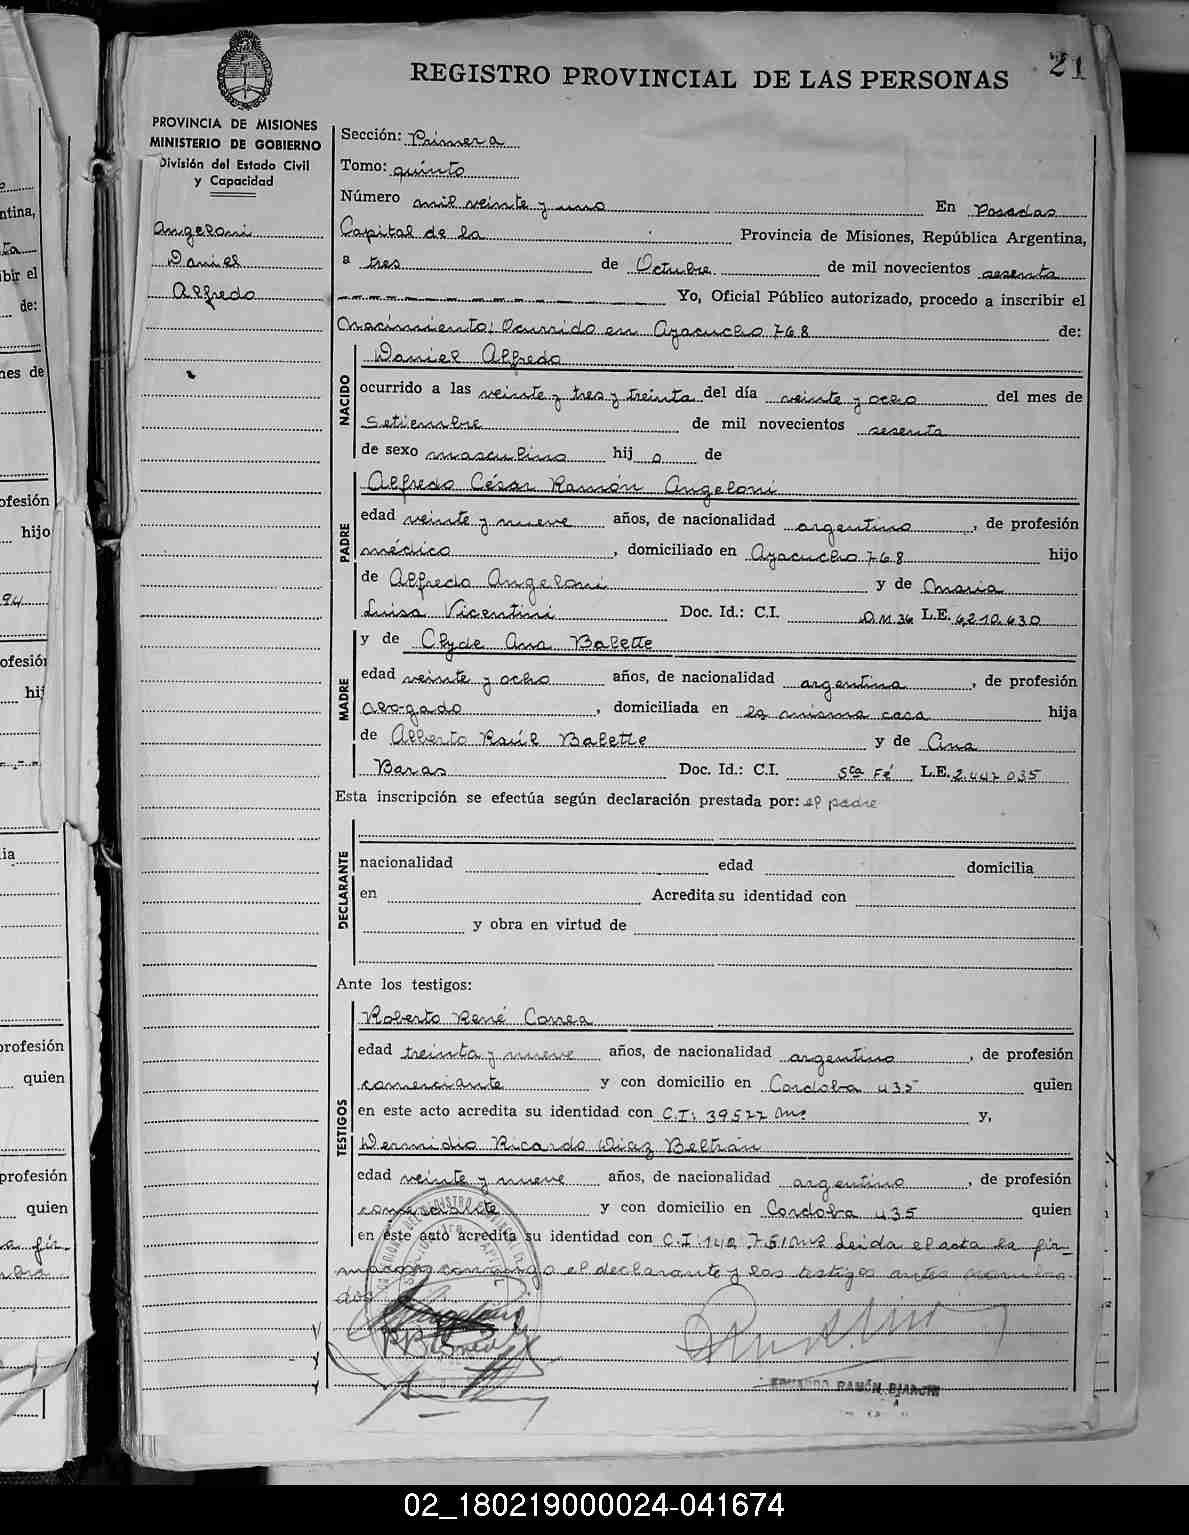 21
REGISTRO PROVINCIAL DE LAS PERSONAS
PROVINCIA DE MISIONES
MINISTERIO DE GOBIERNO
División del Estado Civil
y Capacidad
Angeloni
Daniel
Alfredo
Sección: Primera
Tomo: quinto
Número mil veinte y uno En Posadas
Capital de la Provincia de Misiones, República Argentina,
a tres de Octubre de mil novecientos sesenta
Yo, Oficial Público autorizado, procedo a inscribir el
Nacimiento: Ocurrido en Ayacucho 768 de:
NACIDO
Daniel Alfredo
ocurrido a las veinte y tres y treinta del día veinte y ocho del mes de
Setiembre de mil novecientos sesenta
de sexo masculino hij o de
PADRE
Alfredo César Ramón Angeloni
edad veinte y nueve años, de nacionalidad argentino, de profesión
médico, domiciliado en Ayacucho 768 hijo
de Alfredo Angeloni y de Maria
Luisa Vicentini Doc. Id.: C.I. D.M. 36 L.E. 6.210.630
MADRE
y de Clyde Ana Balette
edad veinte y ocho años, de nacionalidad argentina, de profesión
abogado, domiciliada en la misma casa hija
de Alberto Raúl Balette y de Ana
Baras Doc. Id.: C.I. Sta Fé L.E. 2.447.035
Esta inscripción se efectúa según declaración prestada por: el padre
DECLARANTE
nacionalidad edad domicilia
en Acredita su identidad con
y obra en virtud de
Ante los testigos:
TESTIGOS
Roberto René Correa
edad treinta y nueve años, de nacionalidad argentino, de profesión
comerciante y con domicilio en Cordoba 435 quien
en este acto acredita su identidad con C.I: 39577 Mnes y,
Wermidio Ricardo Diaz Beltrán
edad veinte y nueve años, de nacionalidad argentino, de profesión
comerciante y con domicilio en Cordoba 435 quien
en este acto acredita su identidad con C.I: 142.751 Mnes Leida el acta la fir_
maron conmigo el declarante y los testigos antes nombra_
dos
EDUARDO RAMÓN BIANCHI
02_180219000024-041674